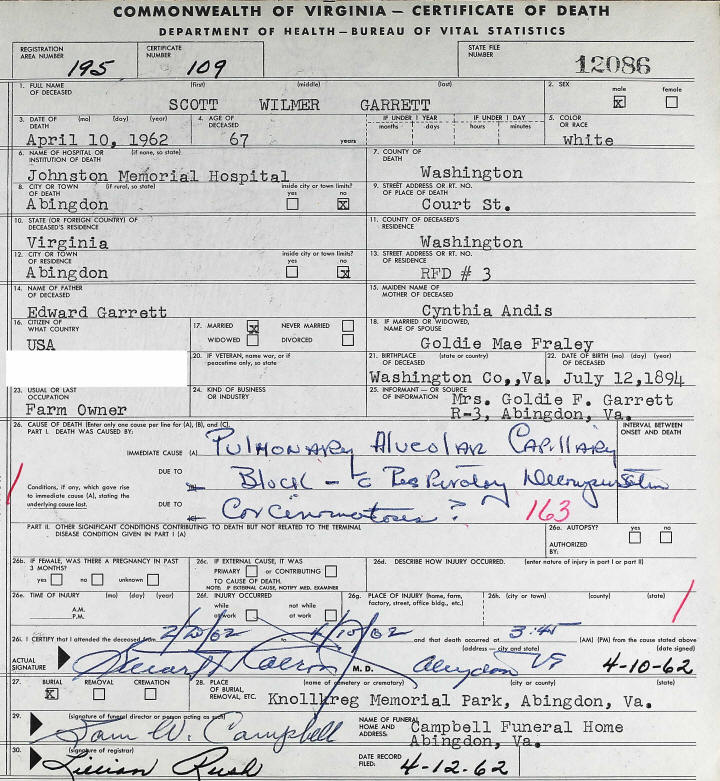 COMMONWEALTH OF VIRGINIA — CERTIFICATE OF DEATH
DEPARTMENT OF HEALTH—BUREAU OF VITAL STATISTICS
REGISTRATION AREA NUMBER 195 CERTIFICATE NUMBER 109 STATE FILE NUMBER 12086
1. FULL NAME OF DECEASED (first) (middle) (last) 2. SEX male female
SCOTT WILMER GARRETT x
3. DATE OF DEATH (mo) (day) (year) 4. AGE OF DECEASED IF UNDER 1 YEAR months days IF UNDER 1 DAY hours minutes 5. COLOR OR RACE
April 10, 1962 67 years white
6. NAME OF HOSPITAL OR INSTITUTION OF DEATH (if none, so state) 7. COUNTY OF DEATH
Johnston Memorial Hospital Washington
8. CITY OR TOWN OF DEATH (if rural, so state) inside city or town limits? yes no 9. STREET ADDRESS OR RT. NO. OF PLACE OF DEATH
Abingdon x Court St.
10. STATE (OR FOREIGN COUNTRY) OF DECEASED'S RESIDENCE 11. COUNTY OF DECEASED'S RESIDENCE
Virginia Washington
12. CITY OR TOWN OF RESIDENCE inside city or town limits? yes no 13. STREET ADDRESS OR RT. NO. OF RESIDENCE
Abingdon x RFD # 3
14. NAME OF FATHER OF DECEASED 15. MAIDEN NAME OF MOTHER OF DECEASED
Edward Garrett Cynthia Andis
16. CITIZEN OF WHAT COUNTRY 17. MARRIED x NEVER MARRIED WIDOWED DIVORCED 18. IF MARRIED OR WIDOWED, NAME OF SPOUSE
USA Goldie Mae Fraley
20. IF VETERAN, name war, or if peacetime only, so state 21. BIRTHPLACE OF DECEASED (state or country) 22. DATE OF BIRTH (mo) (day) (year)
Washington Co,,Va. July 12,1894
23. USUAL OR LAST OCCUPATION 24. KIND OF BUSINESS OR INDUSTRY 25. INFORMANT — OR SOURCE OF INFORMATION Mrs. Goldie F. Garrett
Farm Owner R-3, Abingdon, Va.
26. CAUSE OF DEATH (Enter only one cause per line for (A), (B), and (C). INTERVAL BETWEEN ONSET AND DEATH
PART I. DEATH WAS CAUSED BY:
IMMEDIATE CAUSE (A) Pulmonary Alveolar Capillary
Conditions, if any, which gave rise to immediate cause (A), stating the underlying cause last. DUE TO Block — c Respiratory Decompensation
DUE TO Carcinomatosis? 163
PART II. OTHER SIGNIFICANT CONDITIONS CONTRIBUTING TO DEATH BUT NOT RELATED TO THE TERMINAL DISEASE CONDITION GIVEN IN PART I (A) 26a. AUTOPSY? yes no
AUTHORIZED BY:
26b. IF FEMALE, WAS THERE A PREGNANCY IN PAST 3 MONTHS? yes no unknown 26c. IF EXTERNAL CAUSE, IT WAS PRIMARY or CONTRIBUTING TO CAUSE OF DEATH. NOTE: IF EXTERNAL CAUSE, NOTIFY MED. EXAMINER 26d. DESCRIBE HOW INJURY OCCURRED. (enter nature of injury in part I or part II)
26e. TIME OF INJURY (mo) (day) (year) A.M. P.M. 26f. INJURY OCCURRED while at work not while at work 26g. PLACE OF INJURY (home, farm, factory, street, office bldg., etc.) 26h. (city or town) (county) (state)
26i. I CERTIFY that I attended the deceased from 2/20/62 to 4/10/62 and that death occurred at 3:45 (AM) (PM) from the cause stated above
ACTUAL SIGNATURE M. D. (address — city and state) Abingdon Va (date signed) 4-10-62
27. BURIAL x REMOVAL CREMATION 28. PLACE OF BURIAL, REMOVAL, ETC. (name of cemetery or crematory) (city or county) (state)
Knollkreg Memorial Park, Abingdon, Va.
29. (signature of funeral director or person acting as such) Sam W. Campbell NAME OF FUNERAL HOME AND ADDRESS: Campbell Funeral Home
Abingdon, Va.
30. (signature of registrar) Lillian Rush DATE RECORD FILED: 4-12-62